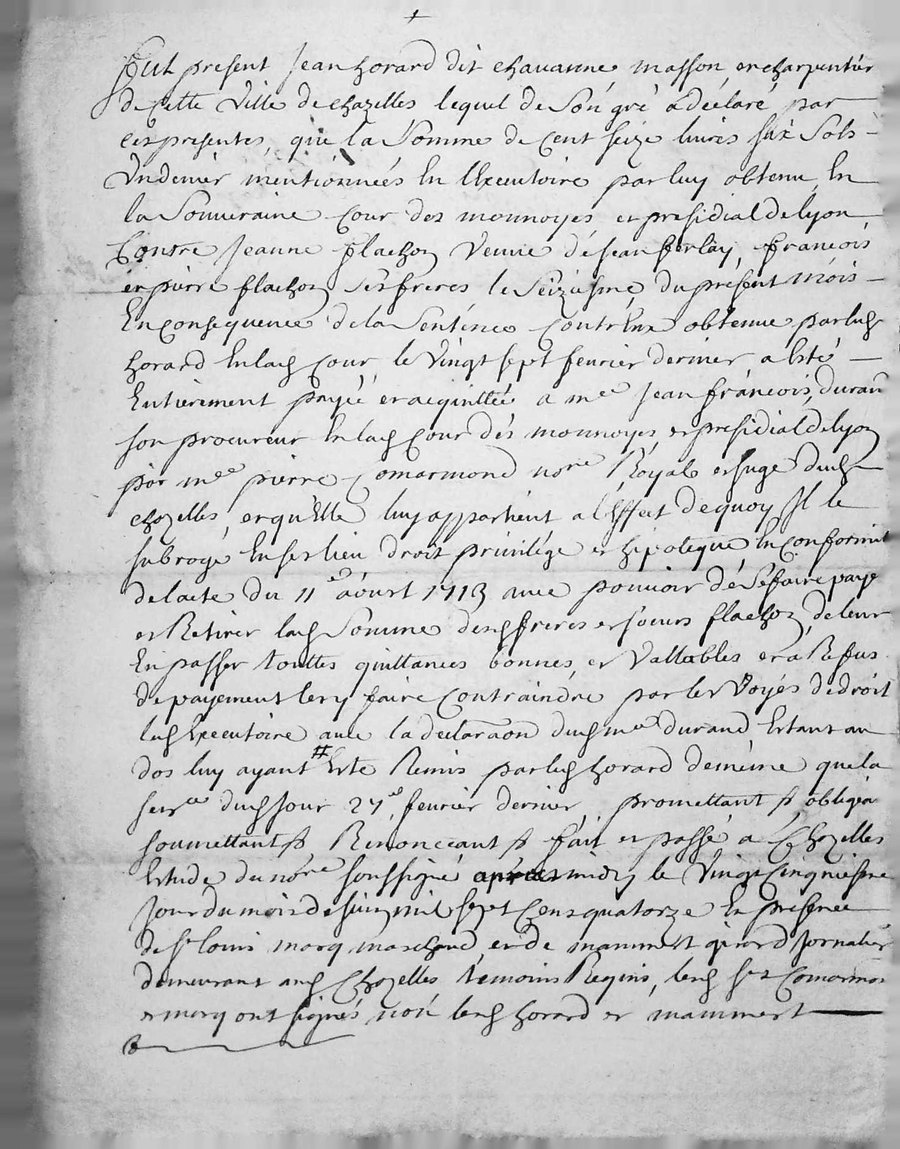 +
Fut present Jean horard dit chauanne masson et charpentier
de cette Ville de chazelles lequel de son gré a déclaré par
ces presentes, que la Somme de Cent seize liures six sols
Un denier mentionnées En l'Executoire par luy obtenu En
la Souueraine Cour des monnoyes et presidial de lyon
Contre Jeanne flachon Veuue de Jean ferlay, francois
et pierre flachon Ses freres le Seiziesme du present mois
En consequence de la Sentence Contr'Eux obtenue par led
horard En lad Cour le Vingt sept feurier dernier a Esté
Entierement payée et acquittée a me Jean francois durand
son procureur En lad Cour des monnoyes et presidial de lyon
par me pierre Comarmond nore Royal et juge dud
chazelles, et qu'Elle luy appartient a l'Effect de quoy Il le
subroge En ses lieu droit priuilége et hipoteque En conformité
de lacte du 11e aoust 1713 auec pouuoir de se faire payer
et Retirer lad Somme desd freres et soeurs flachon, de leur
En passer touttes quittances bonnes et Vallables et a Refus
de payement les y faire Contraindre par les Voyes de droit
led Executoire auec la declaraon dud me durand Estant au
dos luy ayant # Esté Remis par led horard de meme que la
sence dud Jour 27e feurier dernier, promettant & obligea
soumettant & Renonceant & fait et passé a Chazelles
Estude du nore soussigné apres midy le Vingt Cinquiesme
jour du mois de juin mil sept Cens quatorze En presence
de sr louis marq marchand et de mammert girard Jornalier
demeurant aud Chazelles temoins Requis, lesd srs Comarmond
et marq ont signés non lesd horard et mammert